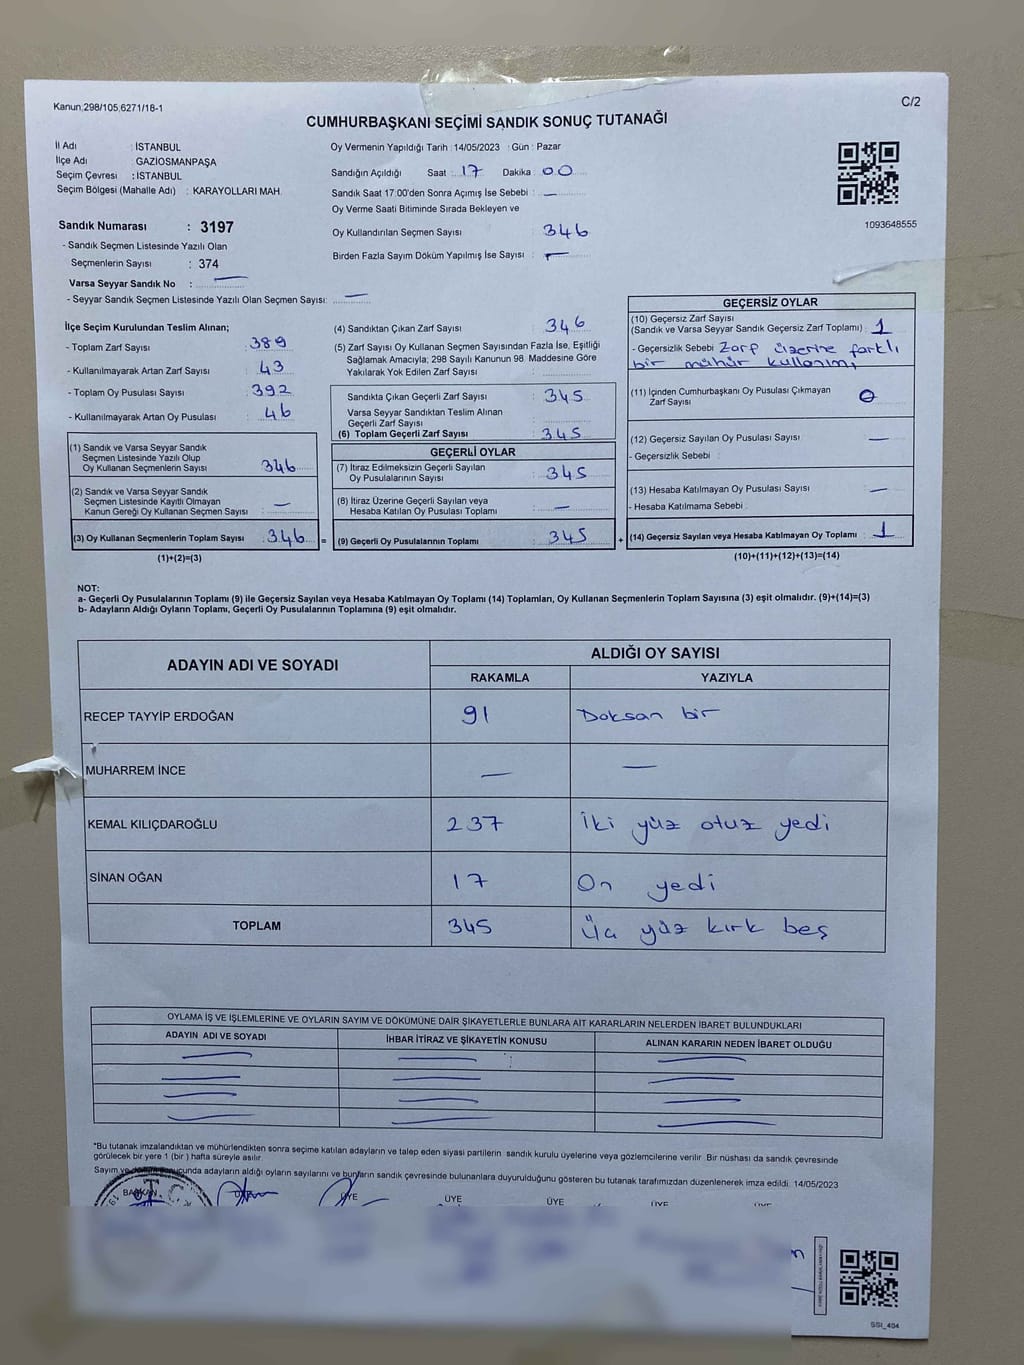 Kanun:298/105,6271/18-1
C/2
CUMHURBAŞKANI SEÇİMİ SANDIK SONUÇ TUTANAĞI
İl Adı : İSTANBUL
İlçe Adı : GAZİOSMANPAŞA
Seçim Çevresi : İSTANBUL
Seçim Bölgesi (Mahalle Adı) : KARAYOLLARI MAH.
Oy Vermenin Yapıldığı Tarih : 14/05/2023 Gün : Pazar
Sandığın Açıldığı Saat : 17 Dakika : 00
Sandık Saat 17:00'den Sonra Açımış İse Sebebi : —
Oy Verme Saati Bitiminde Sırada Bekleyen ve
Oy Kullandırılan Seçmen Sayısı 346
Birden Fazla Sayım Döküm Yapılmış İse Sayısı : —
1093648555
Sandık Numarası : 3197
- Sandık Seçmen Listesinde Yazılı Olan
Seçmenlerin Sayısı : 374
Varsa Seyyar Sandık No : —
- Seyyar Sandık Seçmen Listesinde Yazılı Olan Seçmen Sayısı: —
İlçe Seçim Kurulundan Teslim Alınan;
- Toplam Zarf Sayısı : 389
- Kullanılmayarak Artan Zarf Sayısı : 43
- Toplam Oy Pusulası Sayısı : 392
- Kullanılmayarak Artan Oy Pusulası : 46
(1) Sandık ve Varsa Seyyar Sandık
Seçmen Listesinde Yazılı Olup
Oy Kullanan Seçmenlerin Sayısı 346
(2) Sandık ve Varsa Seyyar Sandık
Seçmen Listesinde Kayıtlı Olmayan
Kanun Gereği Oy Kullanan Seçmen Sayısı : —
(3) Oy Kullanan Seçmenlerin Toplam Sayısı : 346 =
(1)+(2)=(3)
(4) Sandıktan Çıkan Zarf Sayısı : 346
(5) Zarf Sayısı Oy Kullanan Seçmen Sayısından Fazla İse, Eşitliği
Sağlamak Amacıyla; 298 Sayılı Kanunun 98. Maddesine Göre
Yakılarak Yok Edilen Zarf Sayısı :
Sandıkta Çıkan Geçerli Zarf Sayısı : 345
Varsa Seyyar Sandıktan Teslim Alınan
Geçerli Zarf Sayısı :
(6) Toplam Geçerli Zarf Sayısı : 345
GEÇERLİ OYLAR
(7) İtiraz Edilmeksizin Geçerli Sayılan
Oy Pusulalarının Sayısı : 345
(8) İtiraz Üzerine Geçerli Sayılan veya
Hesaba Katılan Oy Pusulası Toplamı : —
(9) Geçerli Oy Pusulalarının Toplamı : 345 +
GEÇERSİZ OYLAR
(10) Geçersiz Zarf Sayısı
(Sandık ve Varsa Seyyar Sandık Geçersiz Zarf Toplamı) : 1
- Geçersizlik Sebebi Zarp üzerine farklı
bir mühür
(11) İçinden Cumhurbaşkanı Oy Pusulası Çıkmayan
Zarf Sayısı 0
(12) Geçersiz Sayılan Oy Pusulası Sayısı : —
- Geçersizlik Sebebi
(13) Hesaba Katılmayan Oy Pusulası Sayısı : —
- Hesaba Katılmama Sebebi :
(14) Geçersiz Sayılan veya Hesaba Katılmayan Oy Toplamı : 1
(10)+(11)+(12)+(13)=(14)
NOT:
a- Geçerli Oy Pusulalarının Toplamı (9) ile Geçersiz Sayılan veya Hesaba Katılmayan Oy Toplamı (14) Toplamları, Oy Kullanan Seçmenlerin Toplam Sayısına (3) eşit olmalıdır. (9)+(14)=(3)
b- Adayların Aldığı Oyların Toplamı, Geçerli Oy Pusulalarının Toplamına (9) eşit olmalıdır.
ADAYIN ADI VE SOYADI
ALDIĞI OY SAYISI
RAKAMLA YAZIYLA
RECEP TAYYİP ERDOĞAN 91 Doksan bir
MUHARREM İNCE — —
KEMAL KILIÇDAROĞLU 237 İki yüz otuz yedi
SİNAN OĞAN 17 On yedi
TOPLAM 345 Üç yüz kırk beş
OYLAMA İŞ VE İŞLEMLERİNE VE OYLARIN SAYIM VE DÖKÜMÜNE DAİR ŞİKAYETLERLE BUNLARA AİT KARARLARIN NELERDEN İBARET BULUNDUKLARI
ADAYIN ADI VE SOYADI İHBAR İTİRAZ VE ŞİKAYETİN KONUSU ALINAN KARARIN NEDEN İBARET OLDUĞU
*Bu tutanak imzalandıktan ve mühürlendikten sonra seçime katılan adayların ve talep eden siyasi partilerin sandık kurulu üyelerine veya gözlemcilerine verilir. Bir nüshası da sandık çevresinde
görülecek bir yere 1 (bir ) hafta süreyle asılır.
Sayım ve adayların aldığı oyların sayılarını ve bunların sandık çevresinde bulunanlara duyurulduğunu gösteren bu tutanak tarafımızdan düzenlenerek imza edildi. 14/05/2023
BAŞKAN ÜYE ÜYE ÜYE ÜYE ÜYE
SSI_404